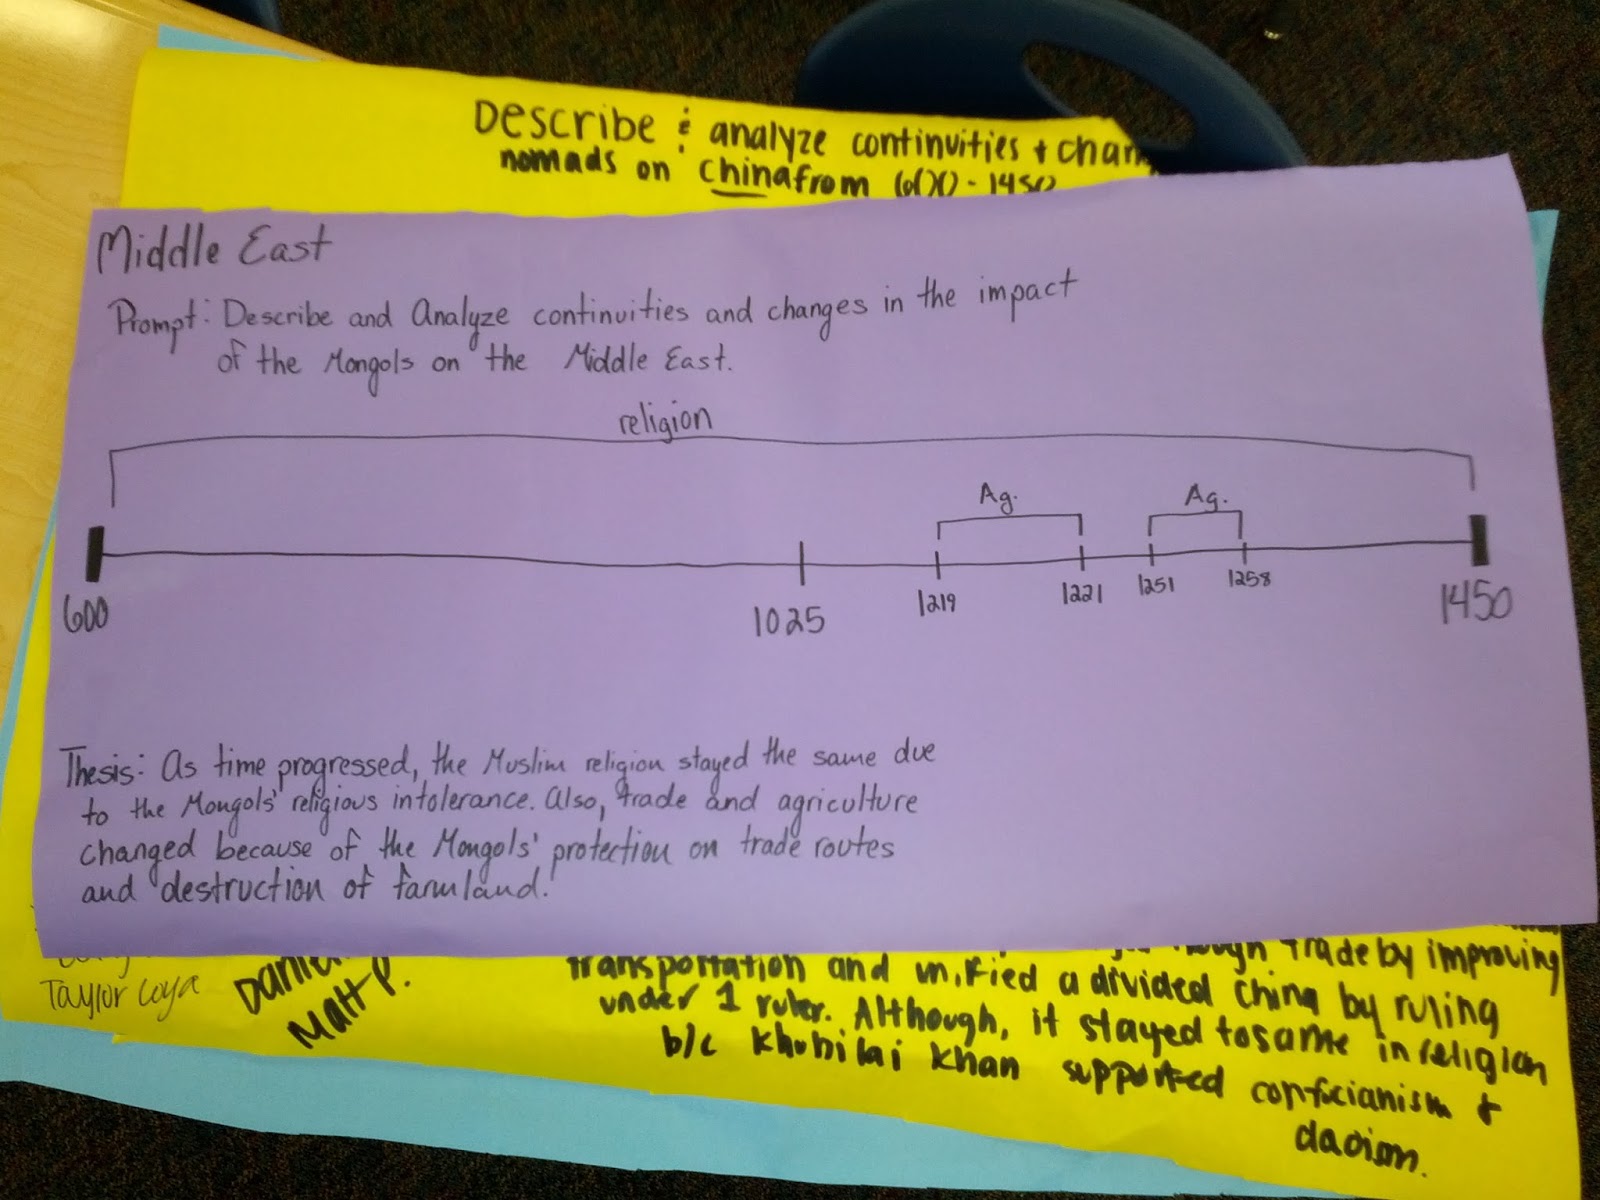 Describe & analyze continuities + chan
nomads on China from 600 - 1450
Middle East
Prompt: Describe and Analyze continuities and changes in the impact
of the Mongols on the Middle East.
religion
Ag.
Ag.
600
1025
1219
1221
1251
1258
1450
Thesis: As time progressed, the Muslim religion stayed the same due
to the Mongols' religious intolerance. Also, trade and agriculture
changed because of the Mongols' protection on trade routes
and destruction of farmland.
trade by improving
transportation and unified a divided China by ruling
under 1 ruler. Although, it stayed to same in religion
b/c Khubilai Khan supported confucianism +
daoism.
Taylor Loya
Daniel
Matt P.